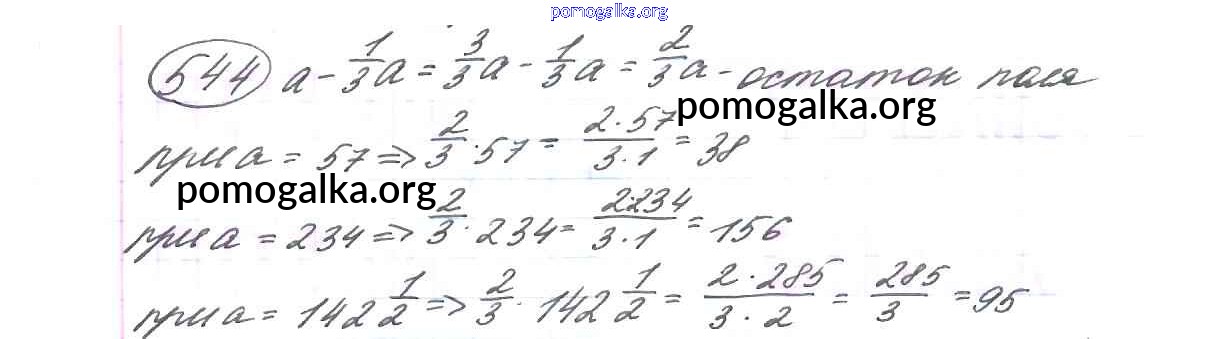 pomogalka.org
544 a - 1/3 a = 3/3 a - 1/3 a = 2/3 a - остаток поля
pomogalka.org
при a = 57 => 2/3 · 57 = 2 · 57 / 3 · 1 = 38
pomogalka.org
при a = 234 => 2/3 · 234 = 2·234 / 3 · 1 = 156
при a = 142 1/2 => 2/3 · 142 1/2 = 2 · 285 / 3 · 2 = 285/3 = 95